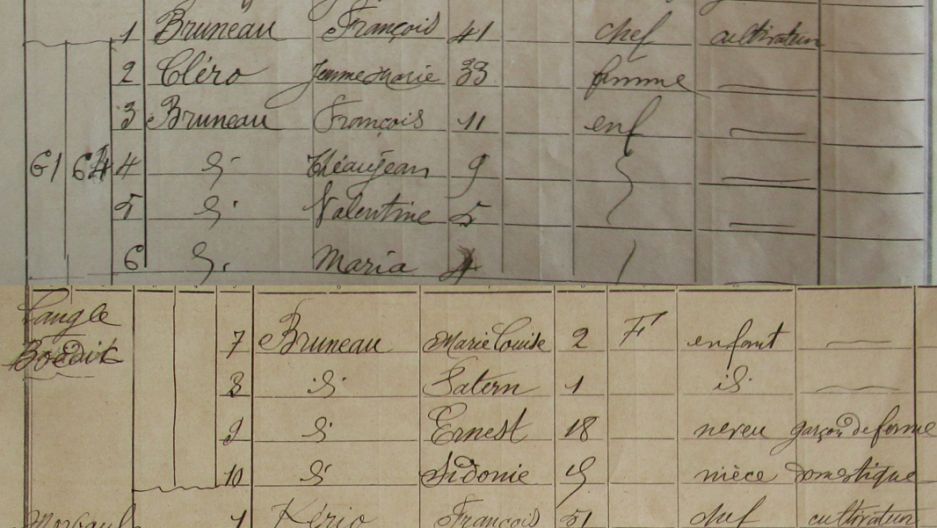 1 Bruneau François 41 chef cultivateur
2 Cléro Jeanne Marie 33 femme
3 Bruneau François 11 enf
61 64 4 id Théaujean 9
5 id Valentine 5
6 id Maria 4
Langle
7 Bruneau Marie Louise 2 F enfant
Boëdic
8 id Satern 1 id
9 id Ernest 18 neveu garçon de ferme
10 id Sidonie nièce domestique
1 Kério François 51 chef cultivateur